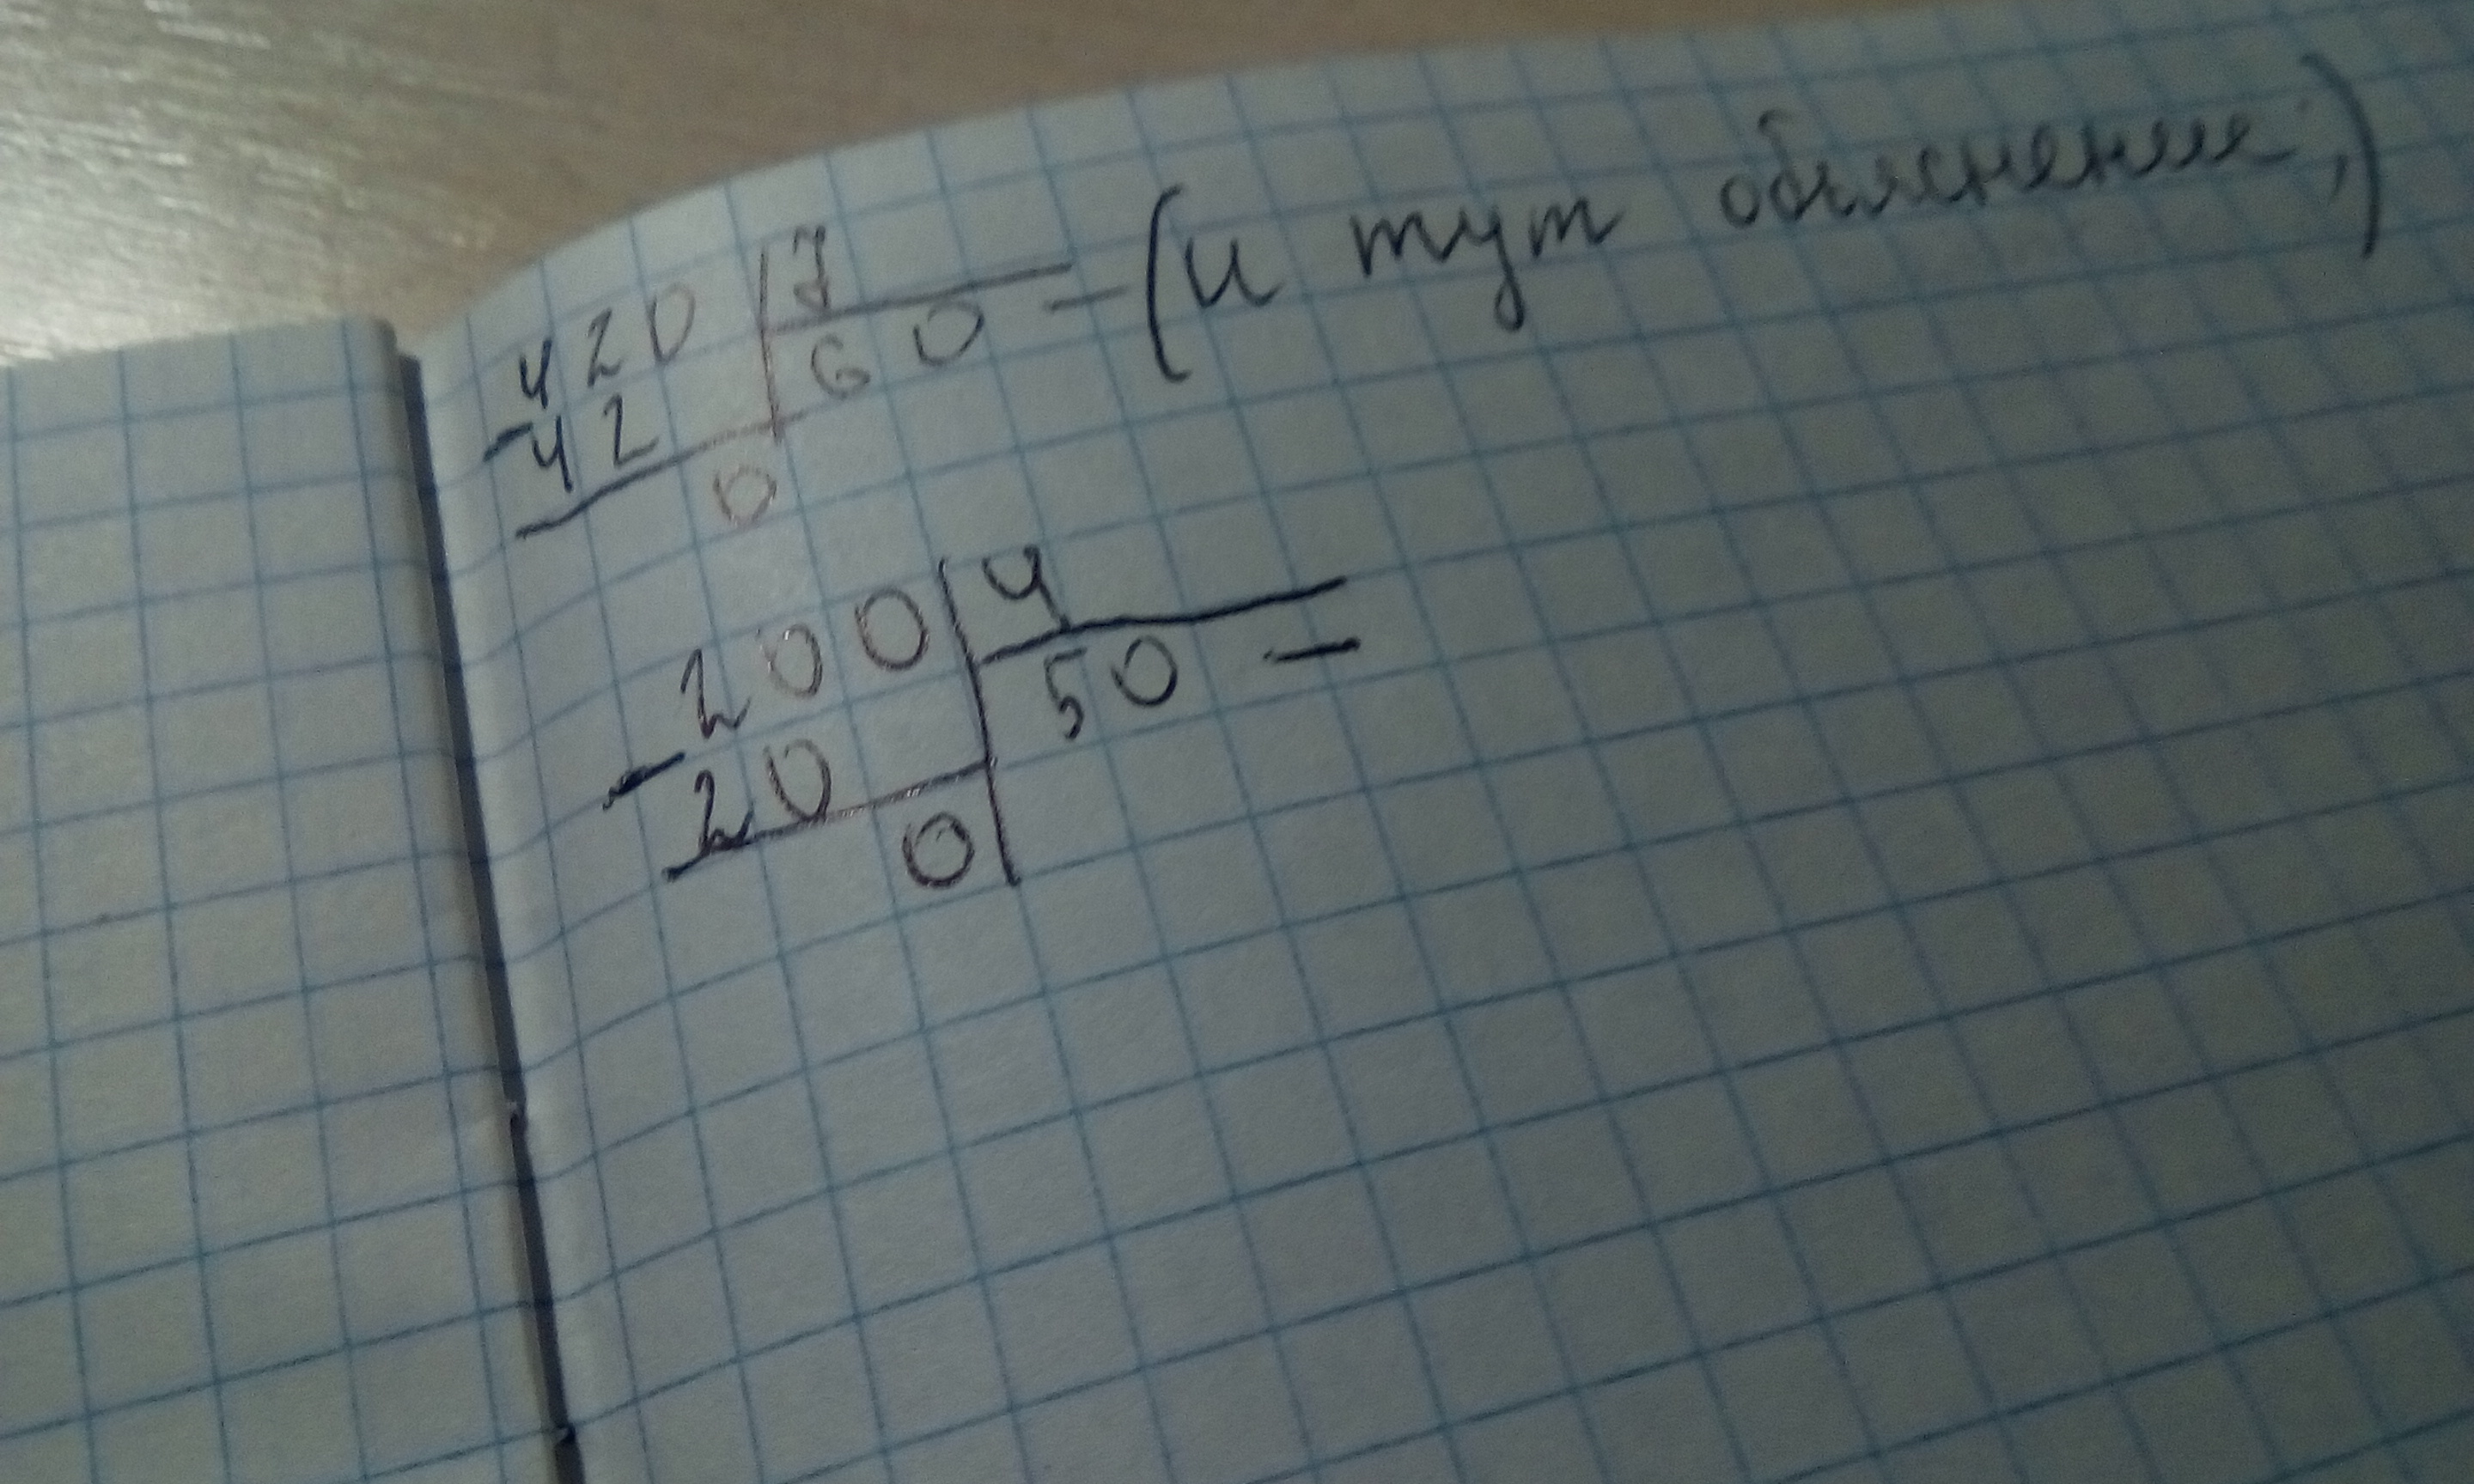 420 7
- 42 60 - (и тут объяснение,)
0
200 4
- 20 50 -
0